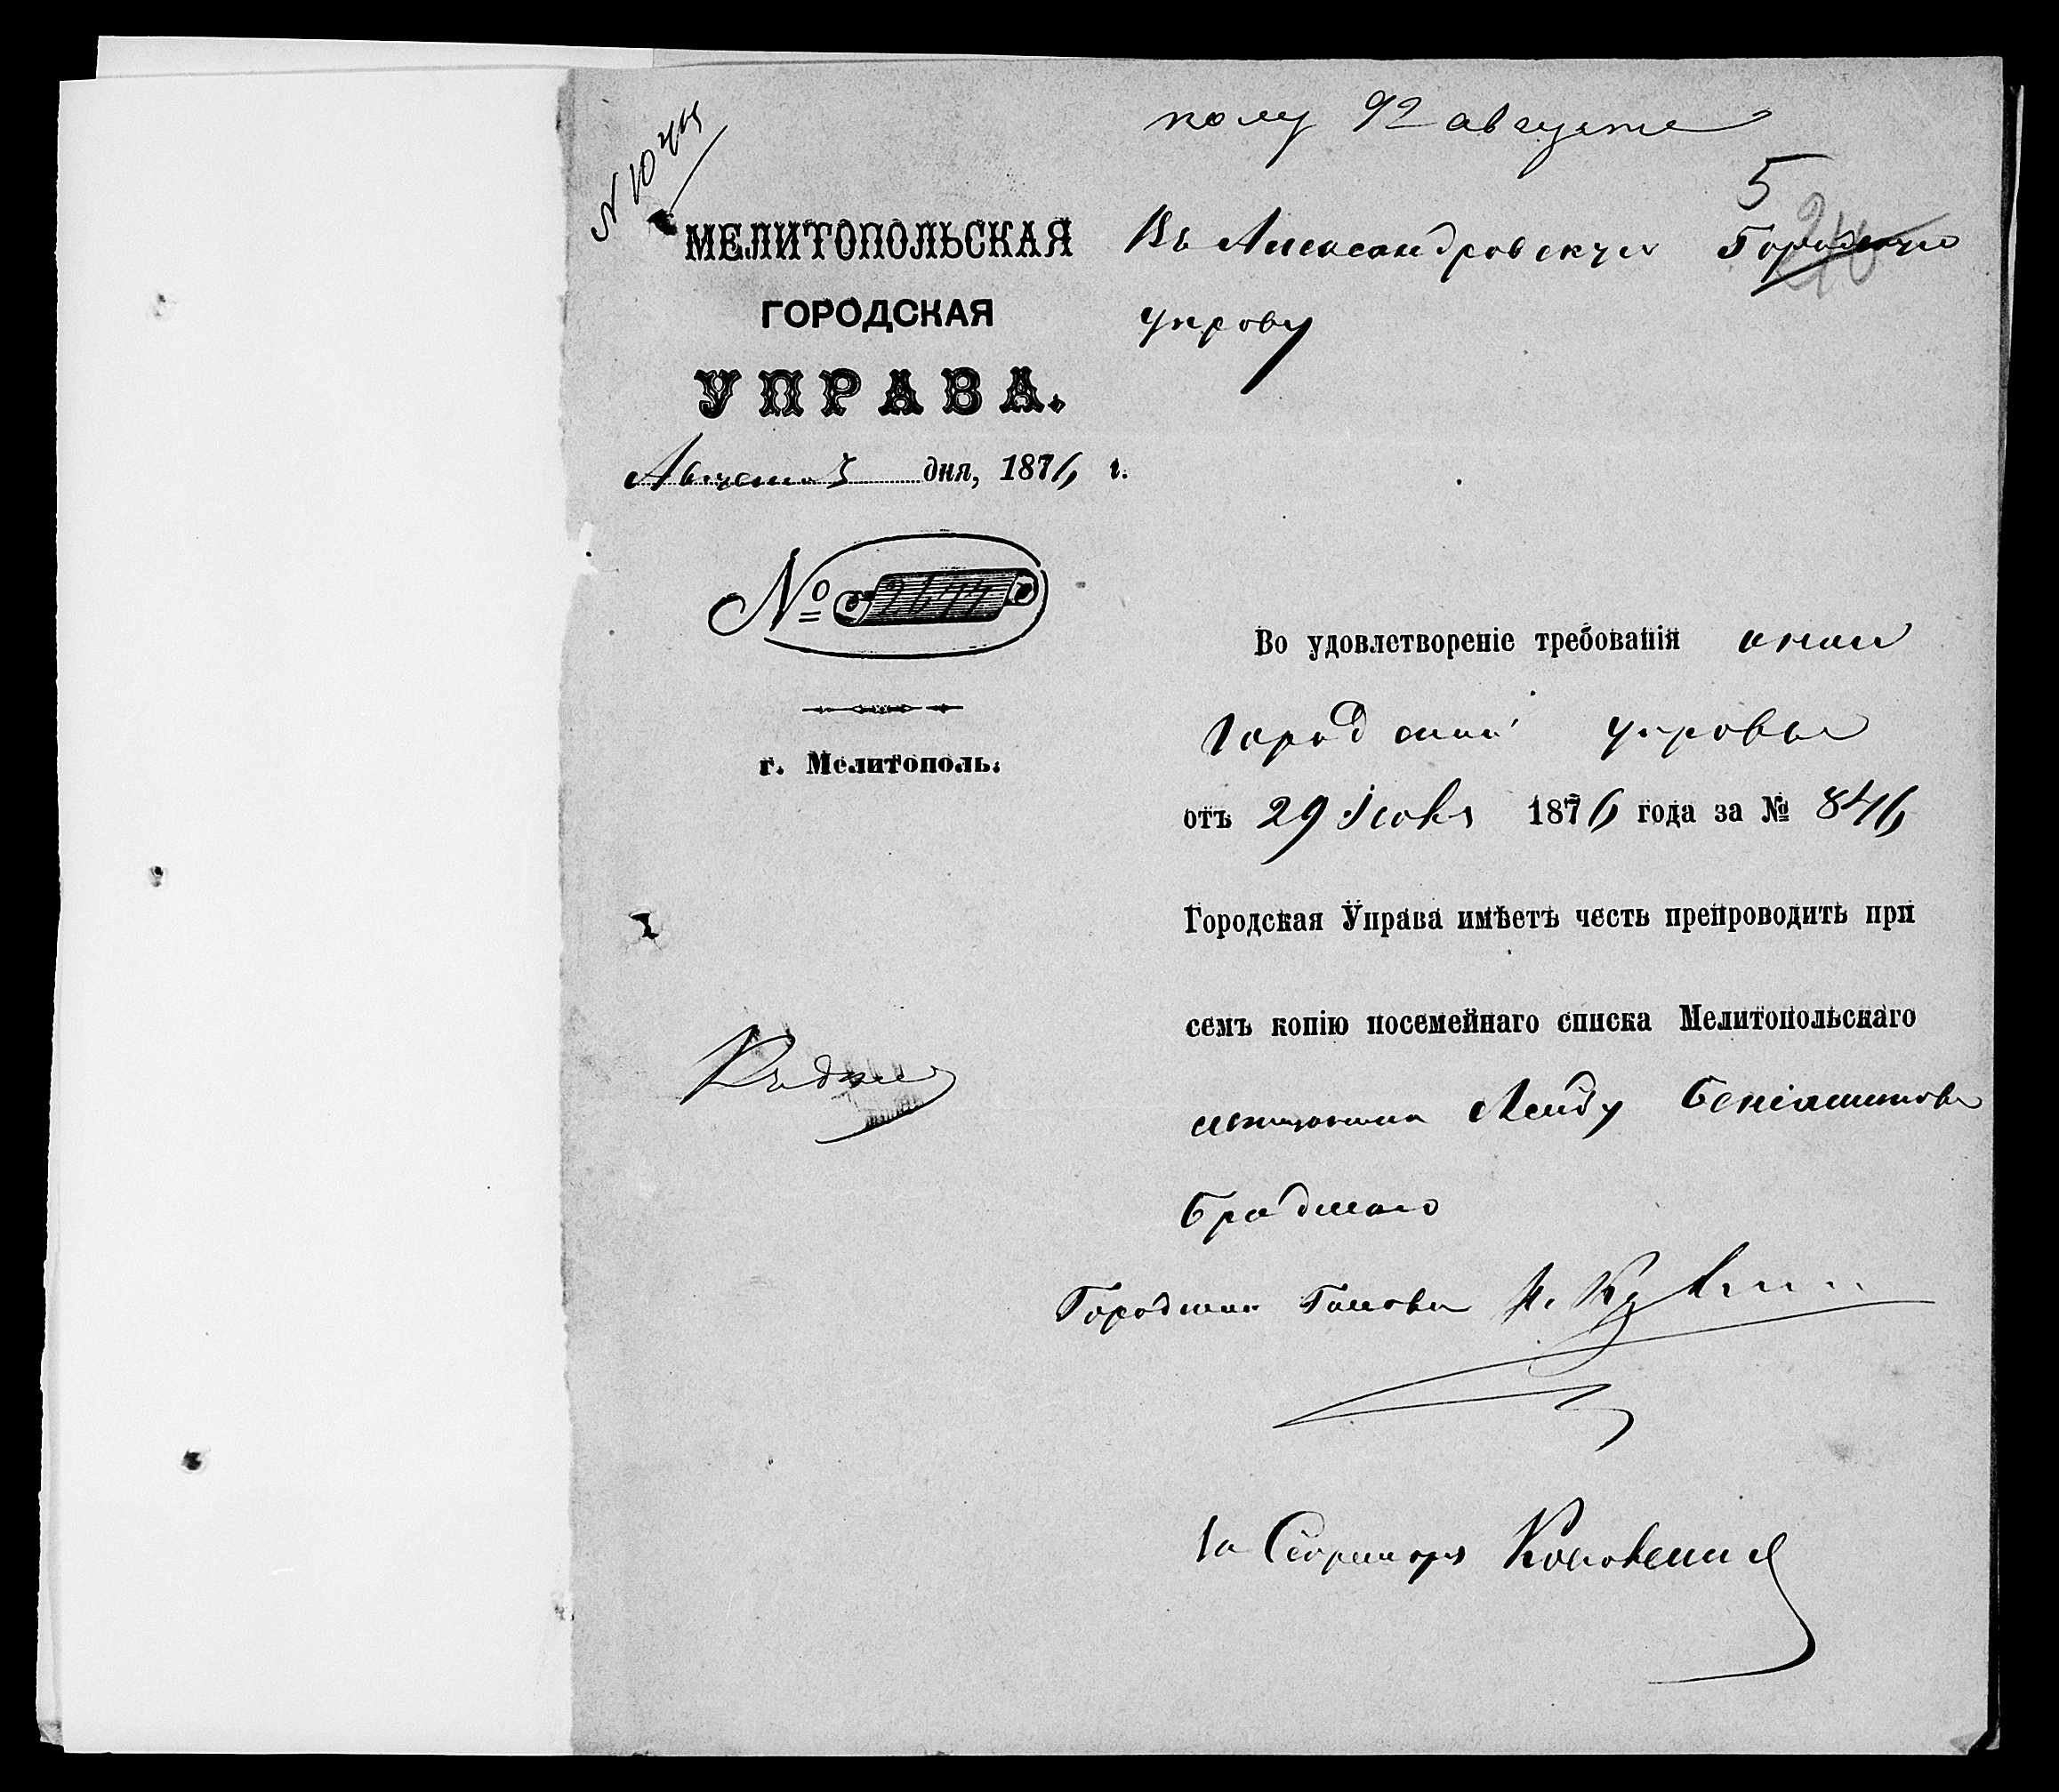 августа
5
Въ Александровскую Городскую
управу
МЕЛИТОПОЛЬСКАЯ
ГОРОДСКАЯ
УПРАВА.
Августа 5 дня, 1876 г.
№ 2644
г. Мелитополь.
Во удовлетвореніе требованія оной
Городской управы
отъ 29 Іюля 1876 года за № 846
Городская Управа имѣетъ честь препроводить при
семъ копію посемейнаго списка Мелитопольскаго
мѣщанина Лейбу Беніаминова
Бродскаго
Городской Голова
За Секретаря